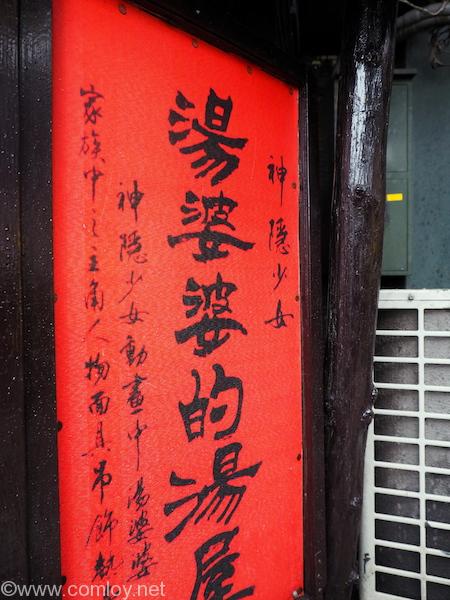 神隱少女
湯婆婆的湯屋
神隱少女動畫中湯婆婆
家族中之主角人物面具吊飾
©www.comloy.net